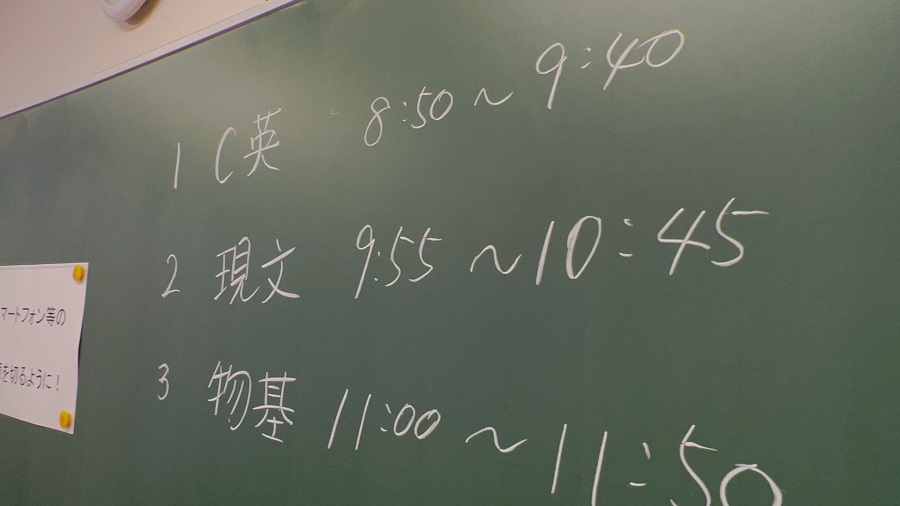 1 C英 8:50～9:40
2 現文 9:55～10:45
3 物基 11:00～11:50
マートフォン等の
を切るように！